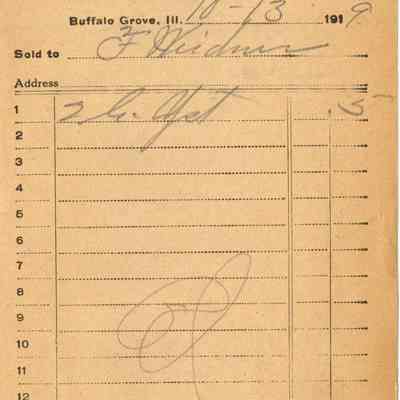 Buffalo Grove, Ill. 10-13 1919
Sold to F Weidner
Address
1 2 G. Yst .5
2
3
4
5
6
7
8
9
10
11
12